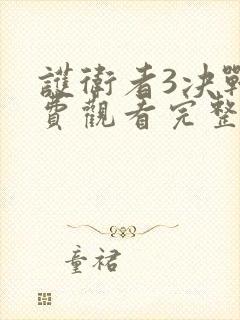 護衛者3决戰
費觀看完整
童裙